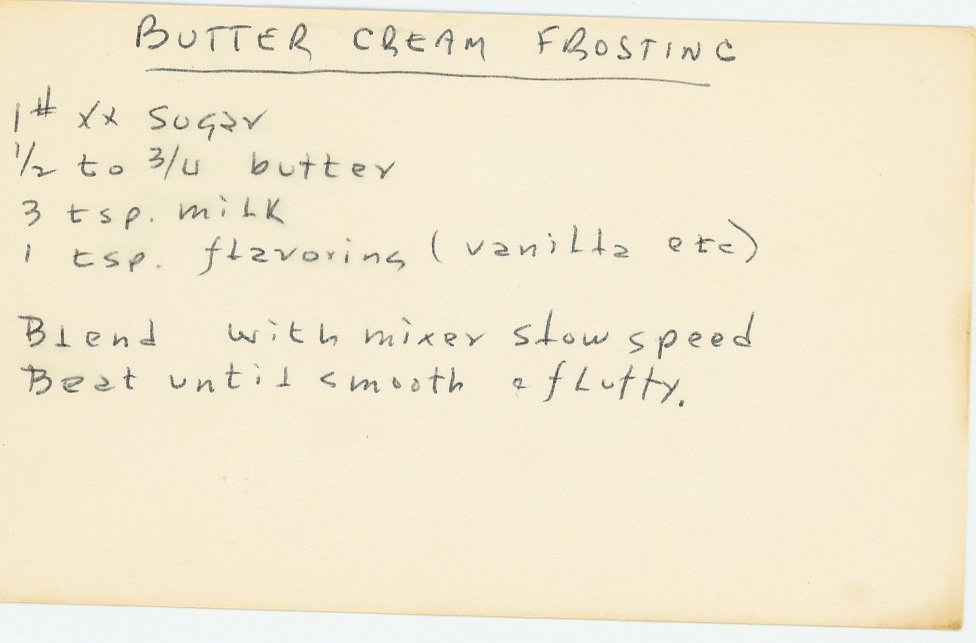 BUTTER CREAM FROSTING
1# xx sugar
1/2 to 3/4 butter
3 tsp. milk
1 tsp. flavoring (vanilla etc)
Blend with mixer slow speed
Beat until smooth & fluffy.